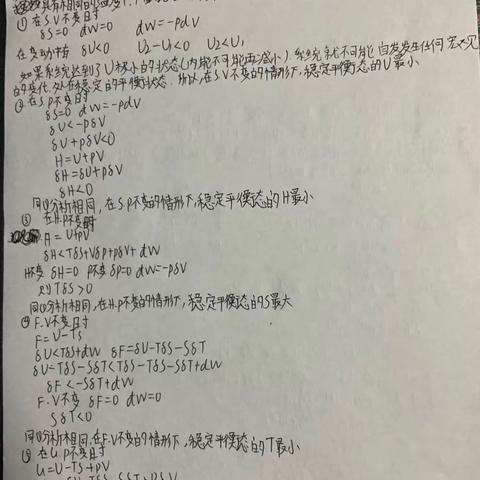 ① 在S.V不变时
δS=0 dW=0 dW=-pdV
在变动中有 δU<0 U₂-U₁<0 U₂<U₁
如果系统达到了U极小的状态(内能不可能再减小)系统就不可能自发发生任何宏观
的变化,处在稳定的平衡状态.所以,在S.V不变的情形下,稳定平衡态的U最小
② 在S.P不变时
δS=0 dW=-pdV
δU<-pδV
δU+pδV<0
H=U+pV
δH=δU+pδV
δH<0
同①分析相同,在S.P不变的情形下,稳定平衡态的H最小
③ 在H.P不变时
H=U+pV
δH<TδS+Vδp+pδV+dW
H不变 δH=0 P不变 δp=0 dW=-pδV
则TδS>0
同①分析相同,在H.P不变的情形下,稳定平衡态的S最大
④ F.V不变时
F=U-TS
δU<TδS+dW δF=δU-TδS-SδT
δU-TδS-SδT<TδS-TδS-SδT+dW
δF<-SδT+dW
F.V不变 δF=0 dW=0
SδT<0
同①分析相同,在F.V不变的情形下,稳定平衡态的T最小
⑤ 在U.P不变时
U=U-TS+pV